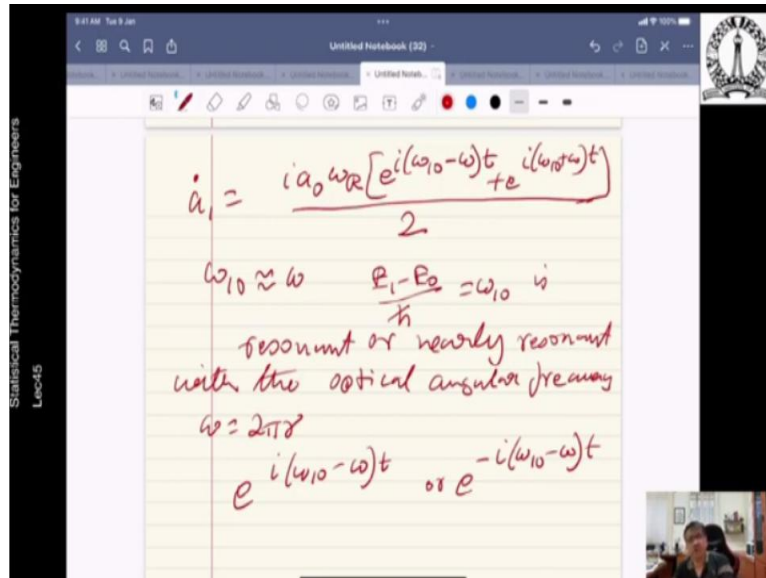 9:41 AM Tue 9 Jan
100%
Untitled Notebook (32)
Untitled Notebook...
Untitled Notebook...
Untitled Notebook...
Untitled Noteb...
Untitled Notebook...
Untitled Notebook...
Untitled Notebook...
Statistical Thermodynamics for Engineers
Lec45
ȧ₁ = i a₀ ω_R [e^{i(ω₁₀-ω)t} + e^{i(ω₁₀+ω)t}] / 2
ω₁₀ ≈ ω (E₁-E₀)/ħ = ω₁₀ is
resonant or nearly resonant
with the optical angular frequency
ω = 2πν
e^{i(ω₁₀-ω)t} or e^{-i(ω₁₀-ω)t}